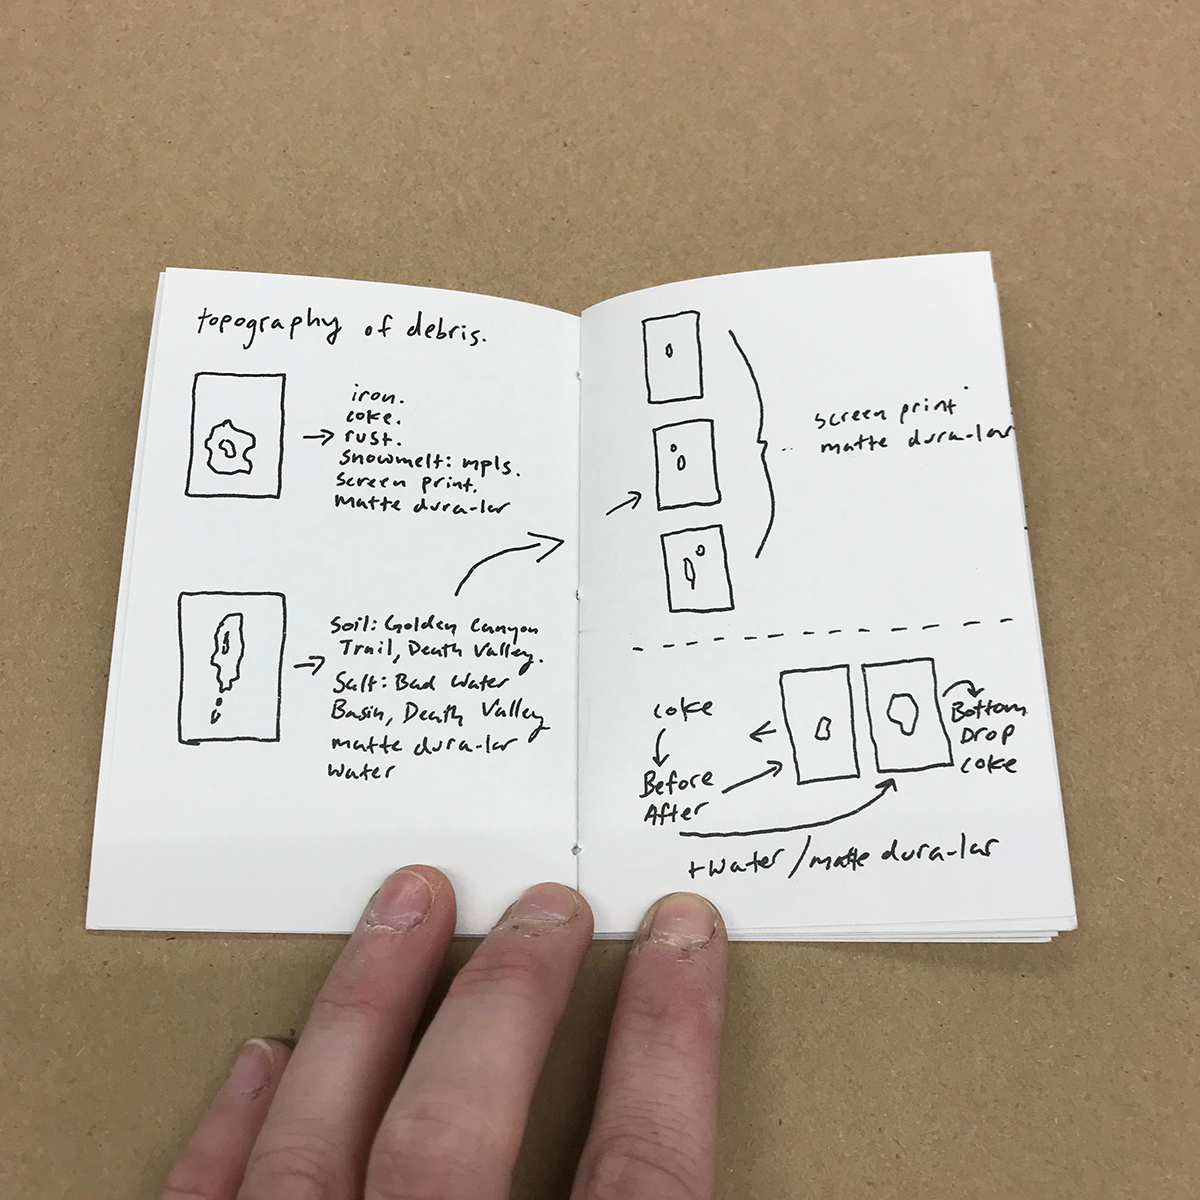 topography of debris.
iron.
coke.
rust.
snowmelt: mpls.
screen print.
matte dura-lar
Soil: Golden Canyon
Trail, Death Valley.
Salt: Bad Water
Basin, Death Valley
matte dura-lar
water
screen print
matte dura-lar
coke
Before
After
Bottom
Drop
coke
+water/matte dura-lar